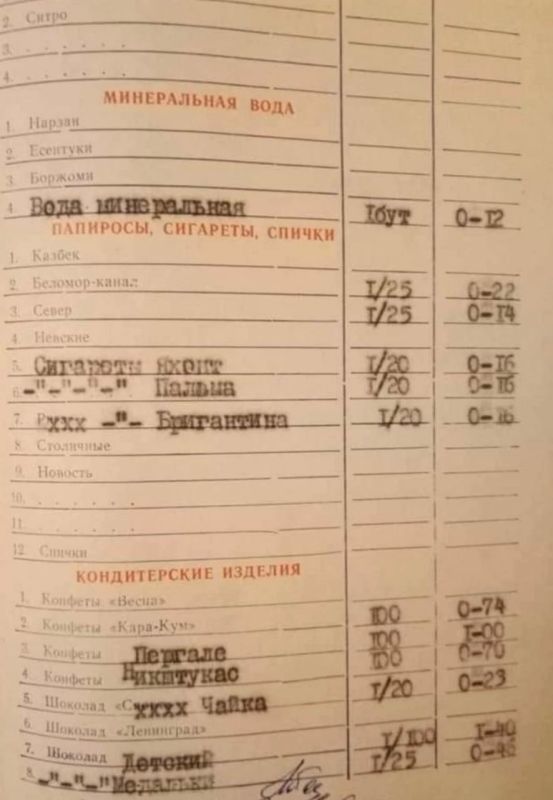 2. Ситро
3. . . . . . .
4. . . . . . .
МИНЕРАЛЬНАЯ ВОДА
1. Нарзан
2. Есентуки
3. Боржоми
4. Вода минеральная 1бут 0-12
ПАПИРОСЫ, СИГАРЕТЫ, СПИЧКИ
1. Казбек
2. Беломор-канал 1/25 0-22
3. Север 1/25 0-14
4. Невские
5. Сигареты Яхонт 1/20 0-16
6. -"-"-"-" Пальма 1/20 0-16
7. ххх -"- Бригантина 1/20 0-16
8. Столичные
9. Новость
10. . . . . . .
11. . . . . . .
12. Спички
КОНДИТЕРСКИЕ ИЗДЕЛИЯ
1. Конфеты «Весна» 100 0-74
2. Конфеты «Кара-Кум» 100 1-00
3. Конфеты Пергале 100 0-70
4. Конфеты Никштукас 1/20 0-23
5. Шоколад хххх Чайка
6. Шоколад «Ленинград» 1/100 1-40
7. Шоколад Детский 1/25 0-48
8. -"-"-" Медальки